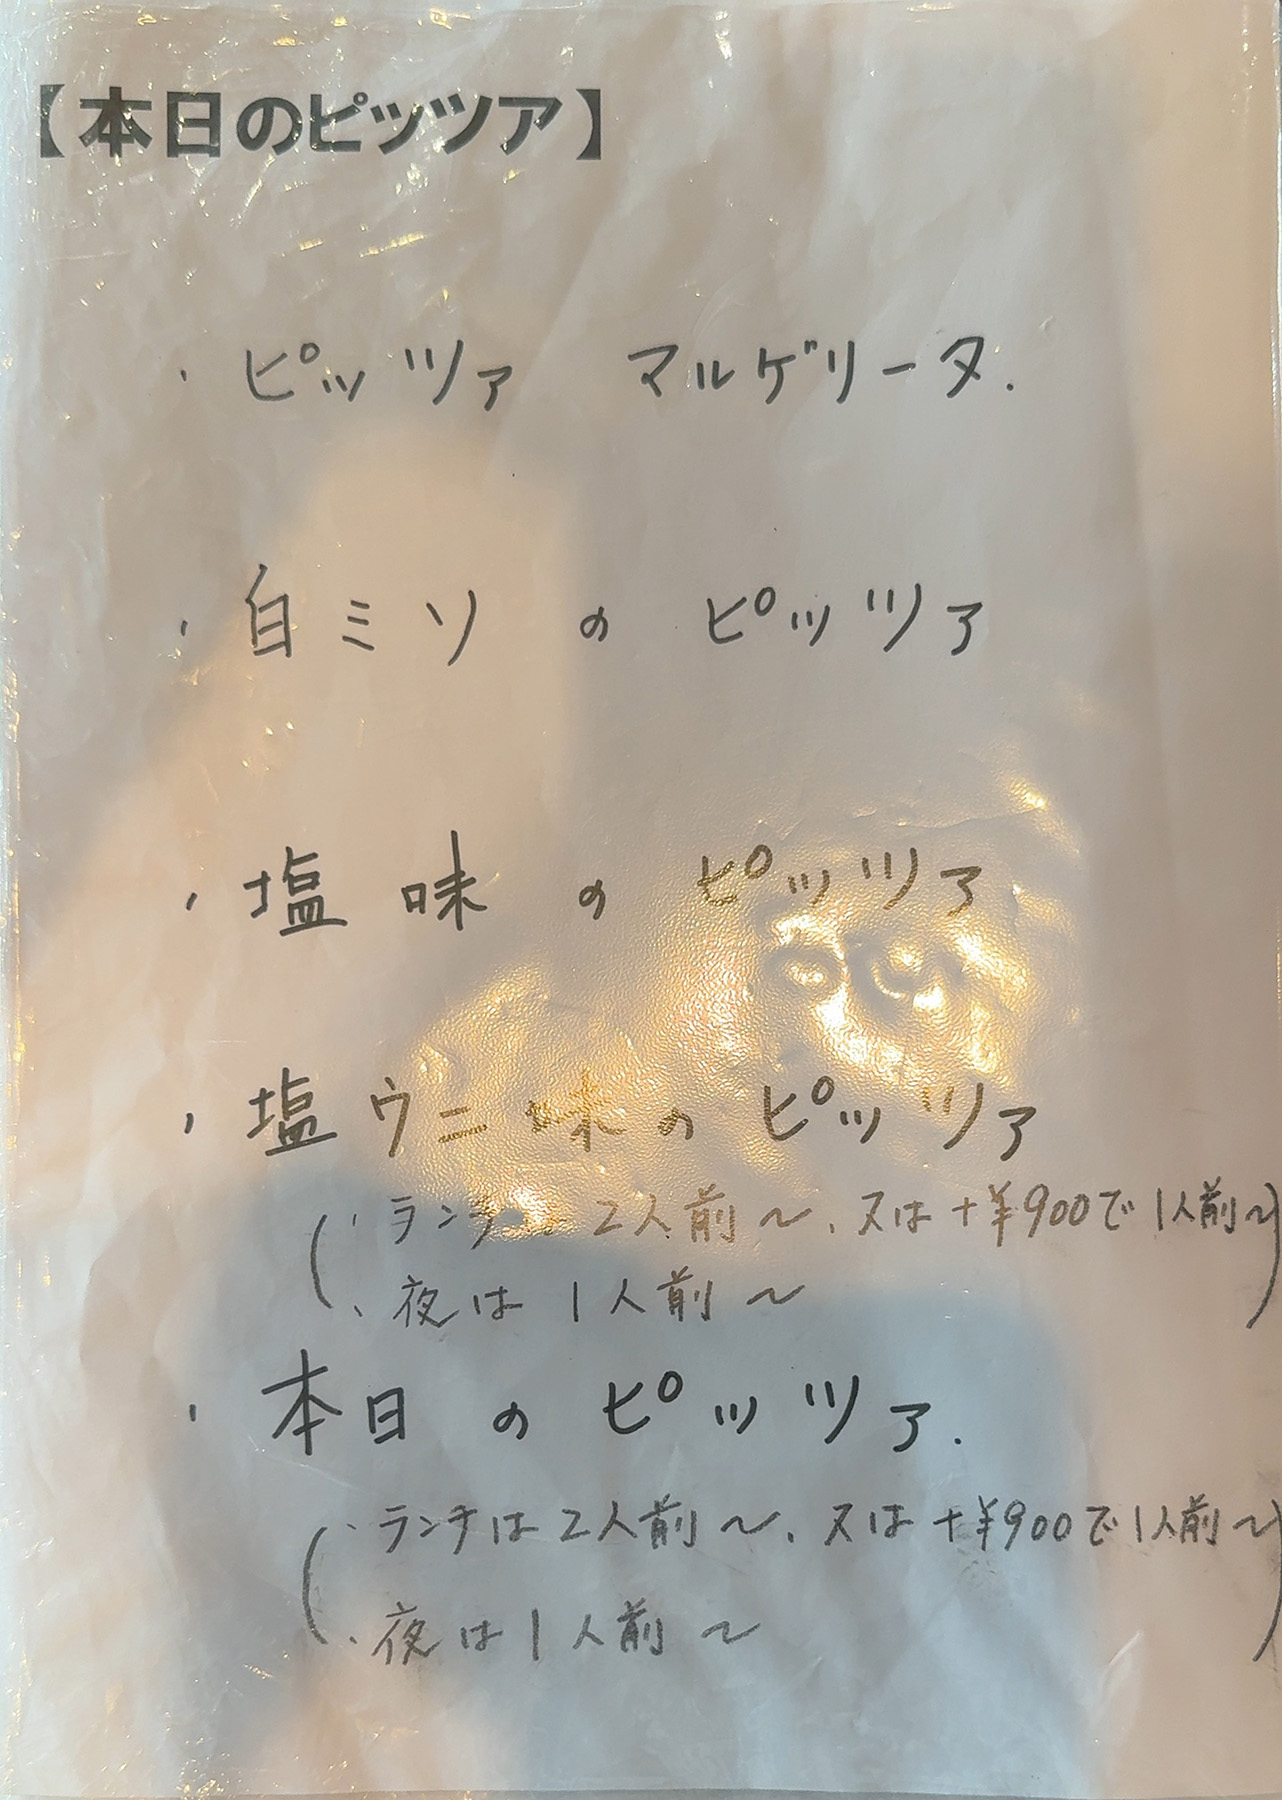 【本日のピッツア】
・ピッツァ マルゲリータ.
・白ミソのピッツァ
・塩味のピッツァ
・塩ウニ味のピッツァ
(・ランチは2人前〜、又は+¥900で1人前〜
・夜は1人前〜)
・本日のピッツァ.
(・ランチは2人前〜、又は+¥900で1人前〜
・夜は1人前〜)